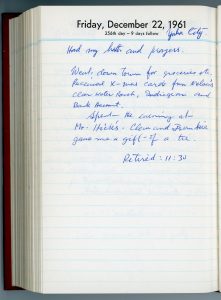 Friday, December 22, 1961
356th day – 9 days follow
Yuba City.
Had my bath and prayers.
Went down town for groceries etc.
Received X-mas cards from
Clear Water Ranch, and
Bank Account.
Spent the evening at
Mr. Clem and
gave me a gift of a tie.
Retired: 11:30